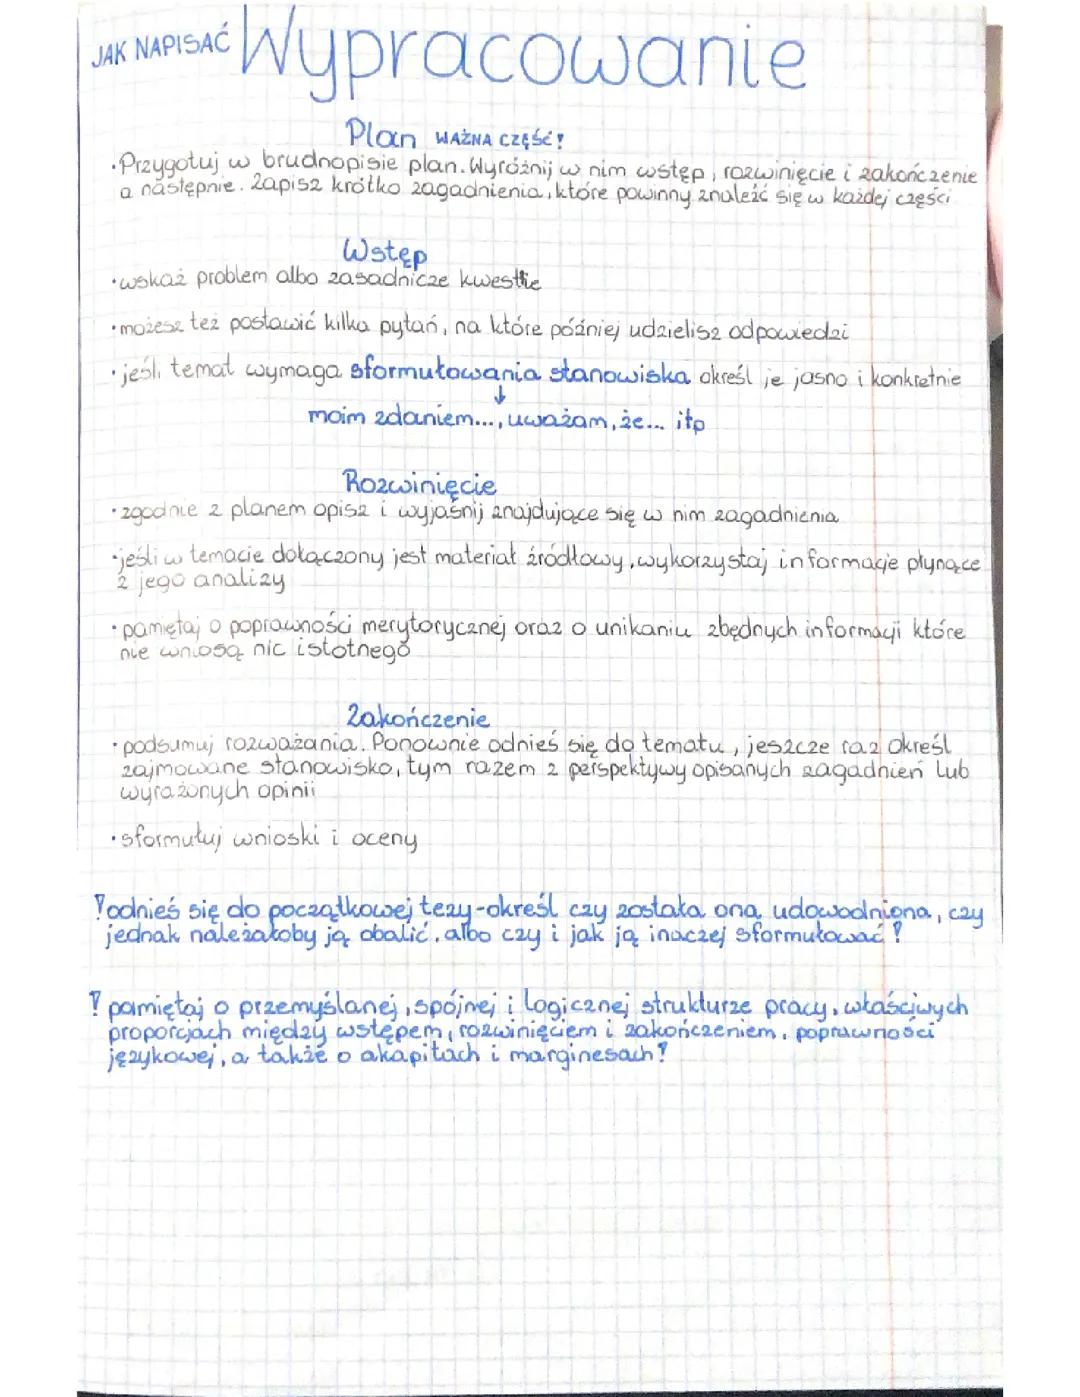 JAK NAPISAĆ Wypracowanie
Plan WAŻNA CZĘŚĆ!
·Przygotuj w brudnopisie plan. Wyróżnij w nim wstęp, rozwinięcie i zakończenie
a następnie. Zapisz krótko zagadnienia, które powinny znaleźć się w każdej części
Wstęp
·wskaż problem albo zasadnicze kwestie
·możesz też postawić kilka pytań, na które później udzielisz odpowiedzi
·jeśli temat wymaga sformułowania stanowiska określ je jasno i konkretnie
↓
moim zdaniem..., uważam, że... itp
Rozwinięcie
·zgodnie z planem opisz i wyjaśnij znajdujące się w nim zagadnienia
·jeśli w temacie dołączony jest materiał źródłowy, wykorzystaj informacje płynące
z jego analizy
·pamiętaj o poprawności merytorycznej oraz o unikaniu zbędnych informacji które
nie wniosą nic istotnego
Zakończenie
·podsumuj rozważania. Ponownie odnieś się do tematu, jeszcze raz określ
zajmowane stanowisko, tym razem z perspektywy opisanych zagadnień lub
wyrażonych opinii
·sformułuj wnioski i oceny
!odnieś się do początkowej tezy-określ czy została ona udowodniona, czy
jednak należałoby ją obalić, albo czy i jak ją inaczej sformułować!
! pamiętaj o przemyślanej, spójnej i logicznej strukturze pracy, właściwych
proporcjach między wstępem, rozwinięciem i zakończeniem, poprawności
językowej, a także o akapitach i marginesach!